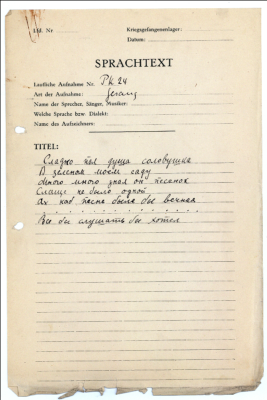 Lfd. Nr.
Kriegsgefangenenlager:
Datum:
SPRACHTEXT
Lautliche Aufnahme Nr. PK 24
Art der Aufnahme: Gesang
Name der Sprecher, Sänger, Musiker:
Welche Sprache bzw. Dialekt:
Name des Aufzeichners:
TITEL:
Сладко пел душа соловушка
В зеленом моем саду
Много много знал он песенок
Слаще не было одной
Ах как песня была бы вечная
Все бы слушать бы хотел